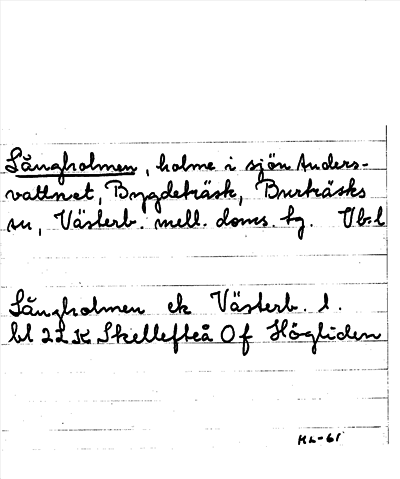 Långholmen, holme i sjön Anders-
vattnet, Bygdeträsk, Burträsks
sn, Västerb. mell. doms. tg. Vb:l
Långholmen ek Västerb. l.
bl 22 K Skellefteå Of Högliden
HL-61